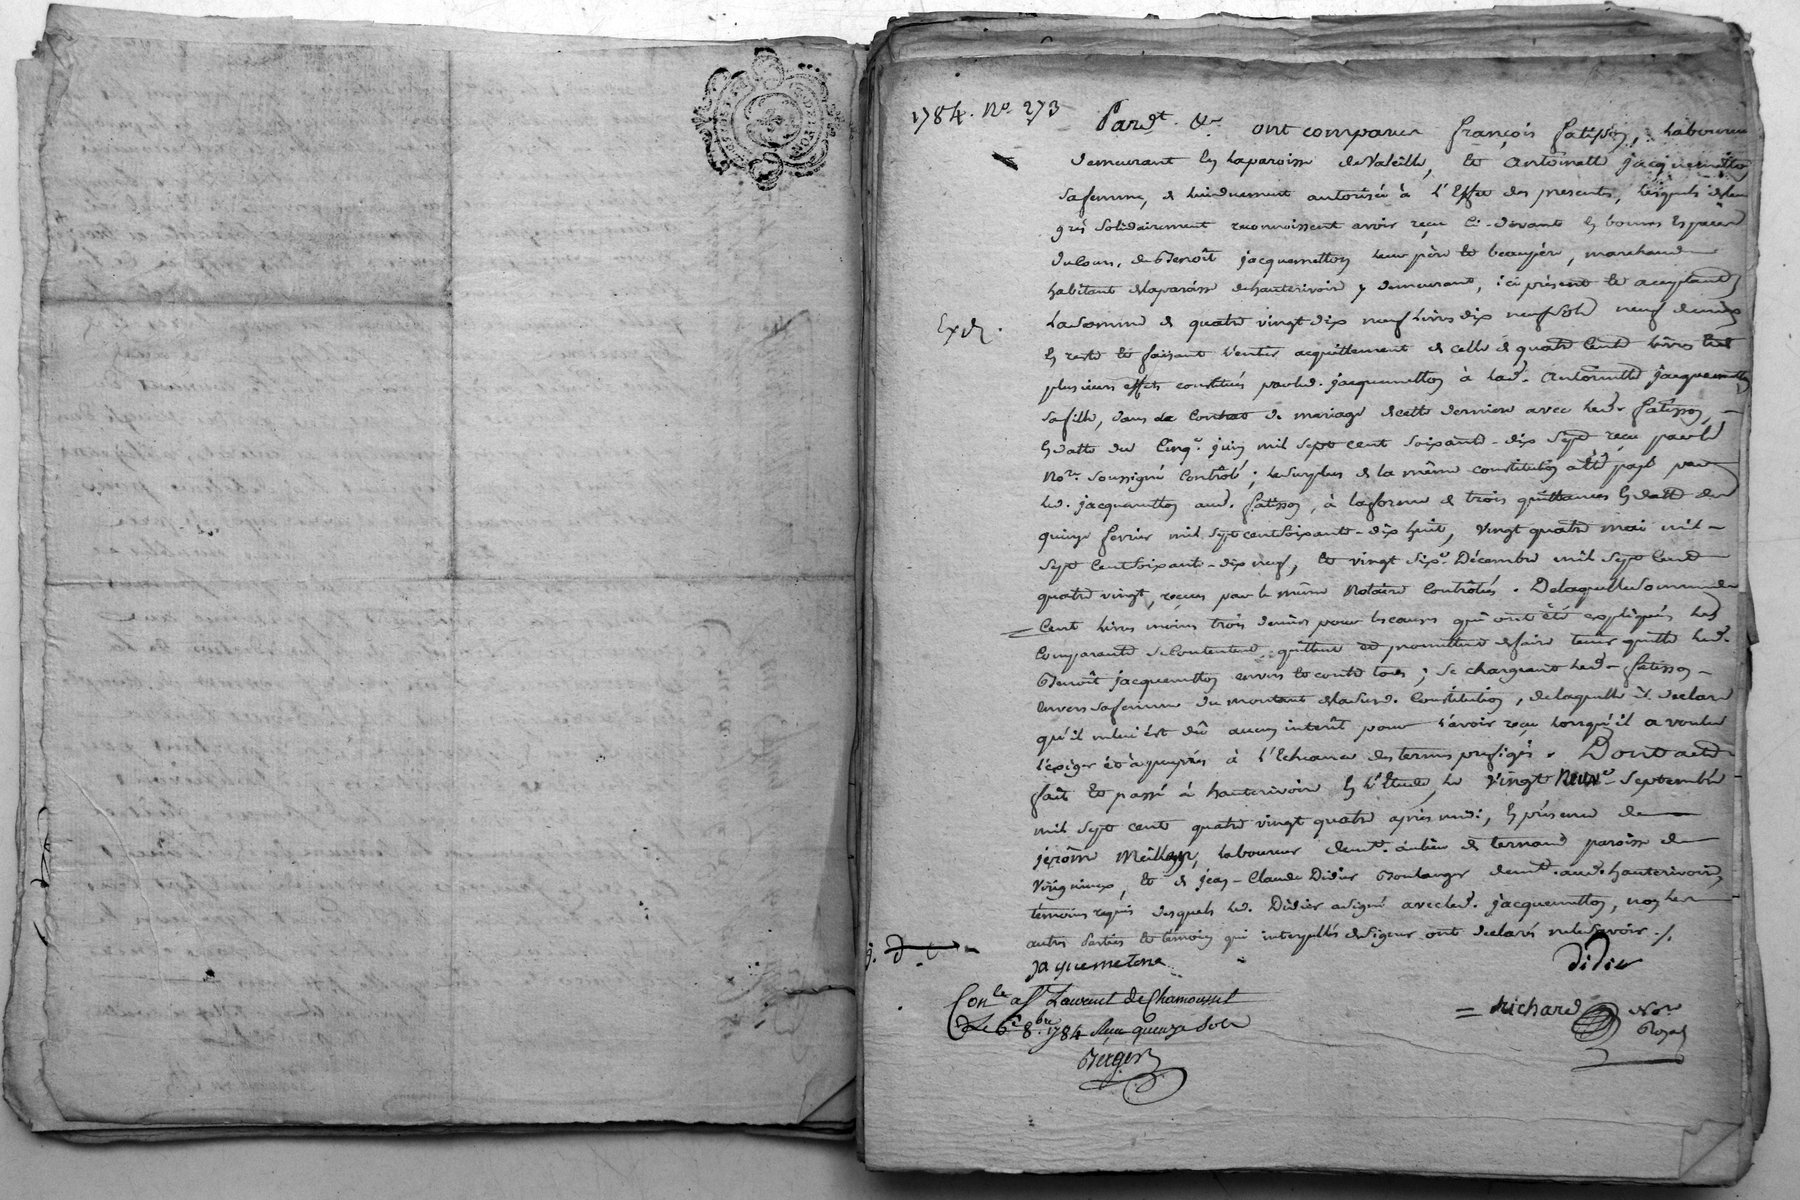 1784. No. 273
Pardt. &c ont comparu françois fatisson, laboureur
demeurant en la paroisse de Valeille, et antoinette jacquemetton
sa femme, de lui duement autorisée à l'Effet des presentes, lesquels de leur
gré solidairement reconnoissent avoir reçu ci-devant en bonnes Espèces
du Cours, de Benoît jacquemetton leur père et beaupère, marchand
habitant de la paroisse de hauterivoire y demeurant, ici présent et acceptant
Exp.
la somme de quatre vingt dix neuf livres dix neuf sols neuf deniers
en reste et faisant l'entier acquittement de celle de quatre Cent livres et
plusieurs effets constitués par led. jacquemetton à lad. antoinette jacquemetton
sa fille, dans le Contrat de mariage de cette derniere avec led. fatisson,
en datte du Cinq. juin mil sept cent soixante-dix sept reçu par le
Nore. soussigné Contrôlé; le surplus de la même constitution a été payé par
led. jacquemetton aud. fatisson, à la forme de trois quittances en datte des
quinze fevrier mil sept cent soixante-dix huit, vingt quatre mai mil
sept Cent soixante-dix neuf, et vingt sixe. Décembre mil sept Cent
quatre vingt, reçues par le même Notaire Contrôlés. De laquelle somme de
Cent livres moins trois deniers pour les causes qui ont été expliquées les
Comparants se Contentent, quittent et promettent de faire tenir quitte led.
Benoît jacquemetton envers et contre tous; se chargeant led. fatisson
envers sa femme du montant de lad. Constitution, de laquelle il declare
qu'il ne lui est dû aucun intérêt pour l'avoir reçu lorsqu'il a voulu
l'exiger et à peu près à l'Echeance des termes prefigés. Dont acte
fait et passé à hauterivoire en l'Etude, le Vingt Neuve. Septembre
mil sept cent quatre vingt quatre après midi, en présence de
jerôme Meillan, laboureur demt. au lieu de ternand paroisse de
Virigneux, et de jean-Claude Didier Boulanger demt. aud. hauterivoire,
témoins requis desquels led. Didier a signé avec led. jacquemetton, non les
autres Parties et témoin qui interpellés de signer ont declaré ne le savoir ./.
jaquemetone
didier
Conle. a St. Laurent de Chamousset
Le 6e 8bre 1784 Reçu quinze sols
Berger
= Richard Nore
Royal